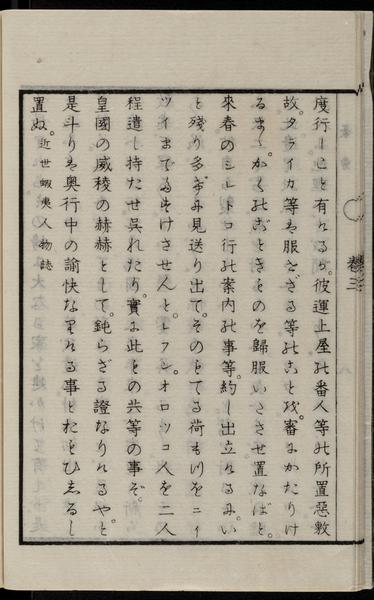 度行しこと有れるが。彼運上屋の番人等の所置惡敷
故。タライカ等も服せざる等のこと我。審にかたりけ
るまゝ。かくのごときものを歸服いたさせ置なばと。
來春のシレトコ行の案内の事等。約し出立れるに。い
と殘り多げに見送り出て。そのもてる荷もつをニイ
ツイまでもたせさせ人と。レフン。オロツコ人を二人
程遣し持たせ呉れたり。實に此もの共等の事ぞ。
皇國の威稜の赫赫として。鈍らざる證なりけるやと
是斗りは奥行中の愉快なりける事とたをひしるし
置ぬ。近世蝦夷人物誌
卷三